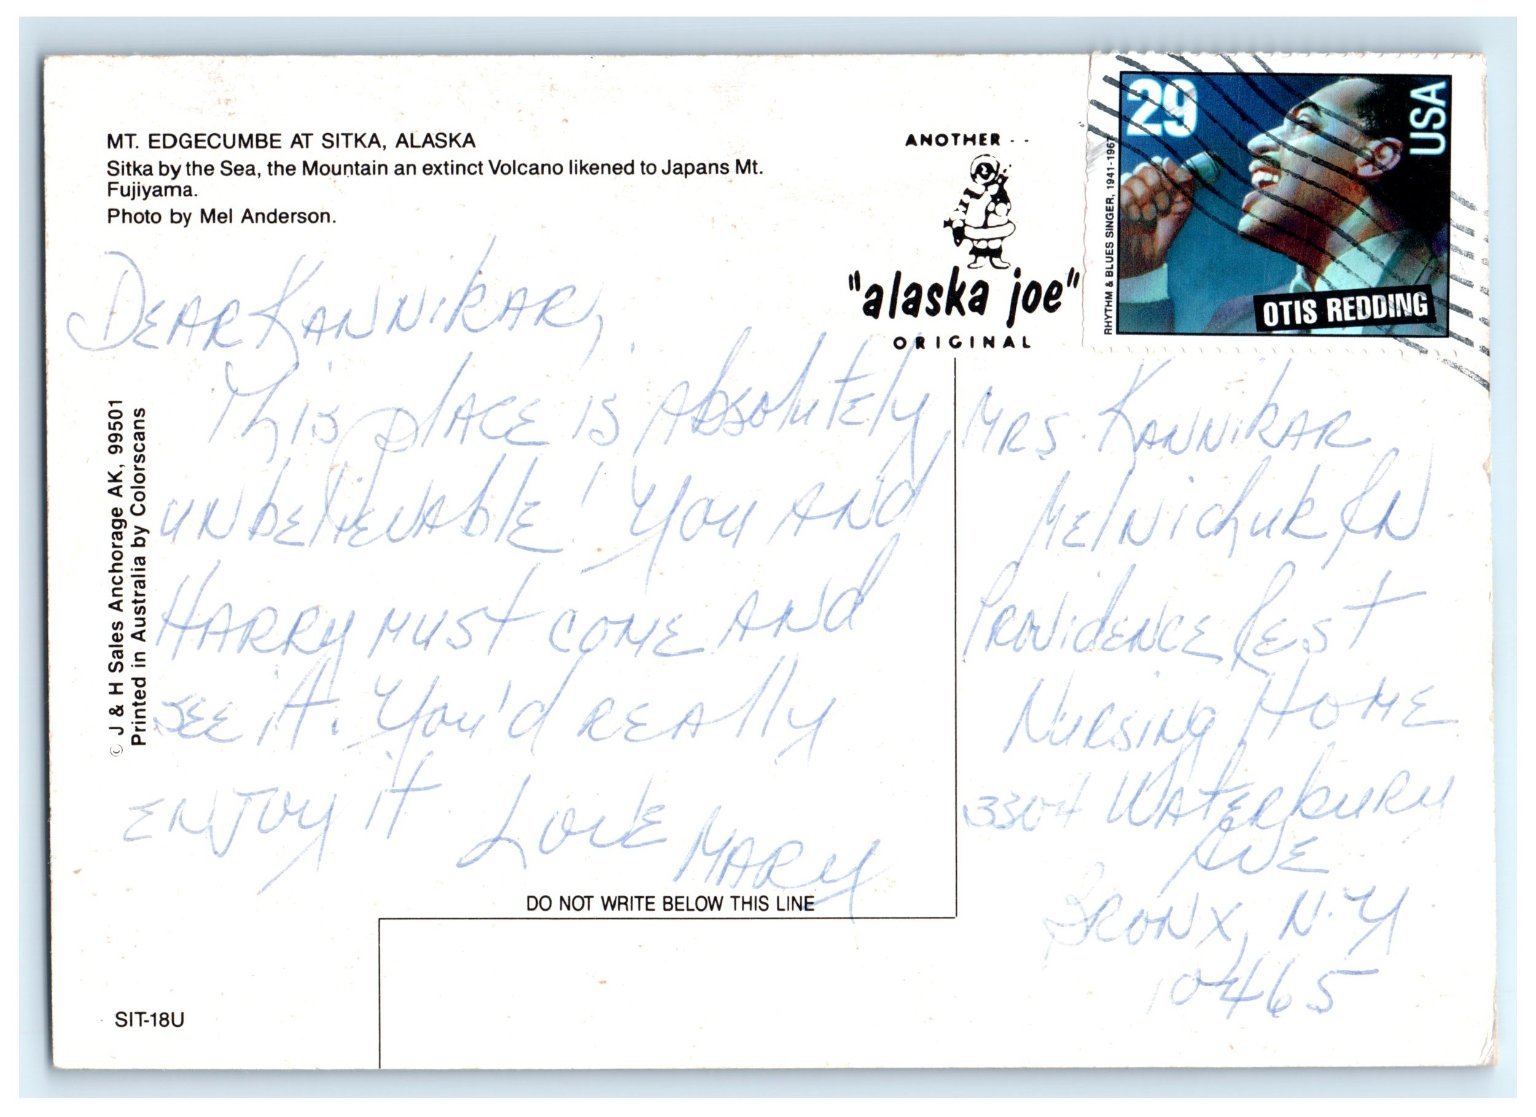 MT. EDGECUMBE AT SITKA, ALASKA
Sitka by the Sea, the Mountain an extinct Volcano likened to Japans Mt.
Fujiyama.
Photo by Mel Anderson.
ANOTHER . .
"alaska joe"
ORIGINAL
29
USA
RHYTHM & BLUES SINGER, 1941-1967
OTIS REDDING
© J & H Sales Anchorage AK, 99501
Printed in Australia by Colorscans
DEAR KANNIKAR,
This place is absolutely
unbelievable! You AND
HARRY MUST COME AND
SEE it. You'd REAlly
ENJOY it
LOVE MARY
MRS. KANNIKAR
MelNichuk RN
PROVIDENCE REST
NURSING HOME
3304 WATERBURY
AVE
BRONX, N.Y
10465
DO NOT WRITE BELOW THIS LINE
SIT-18U